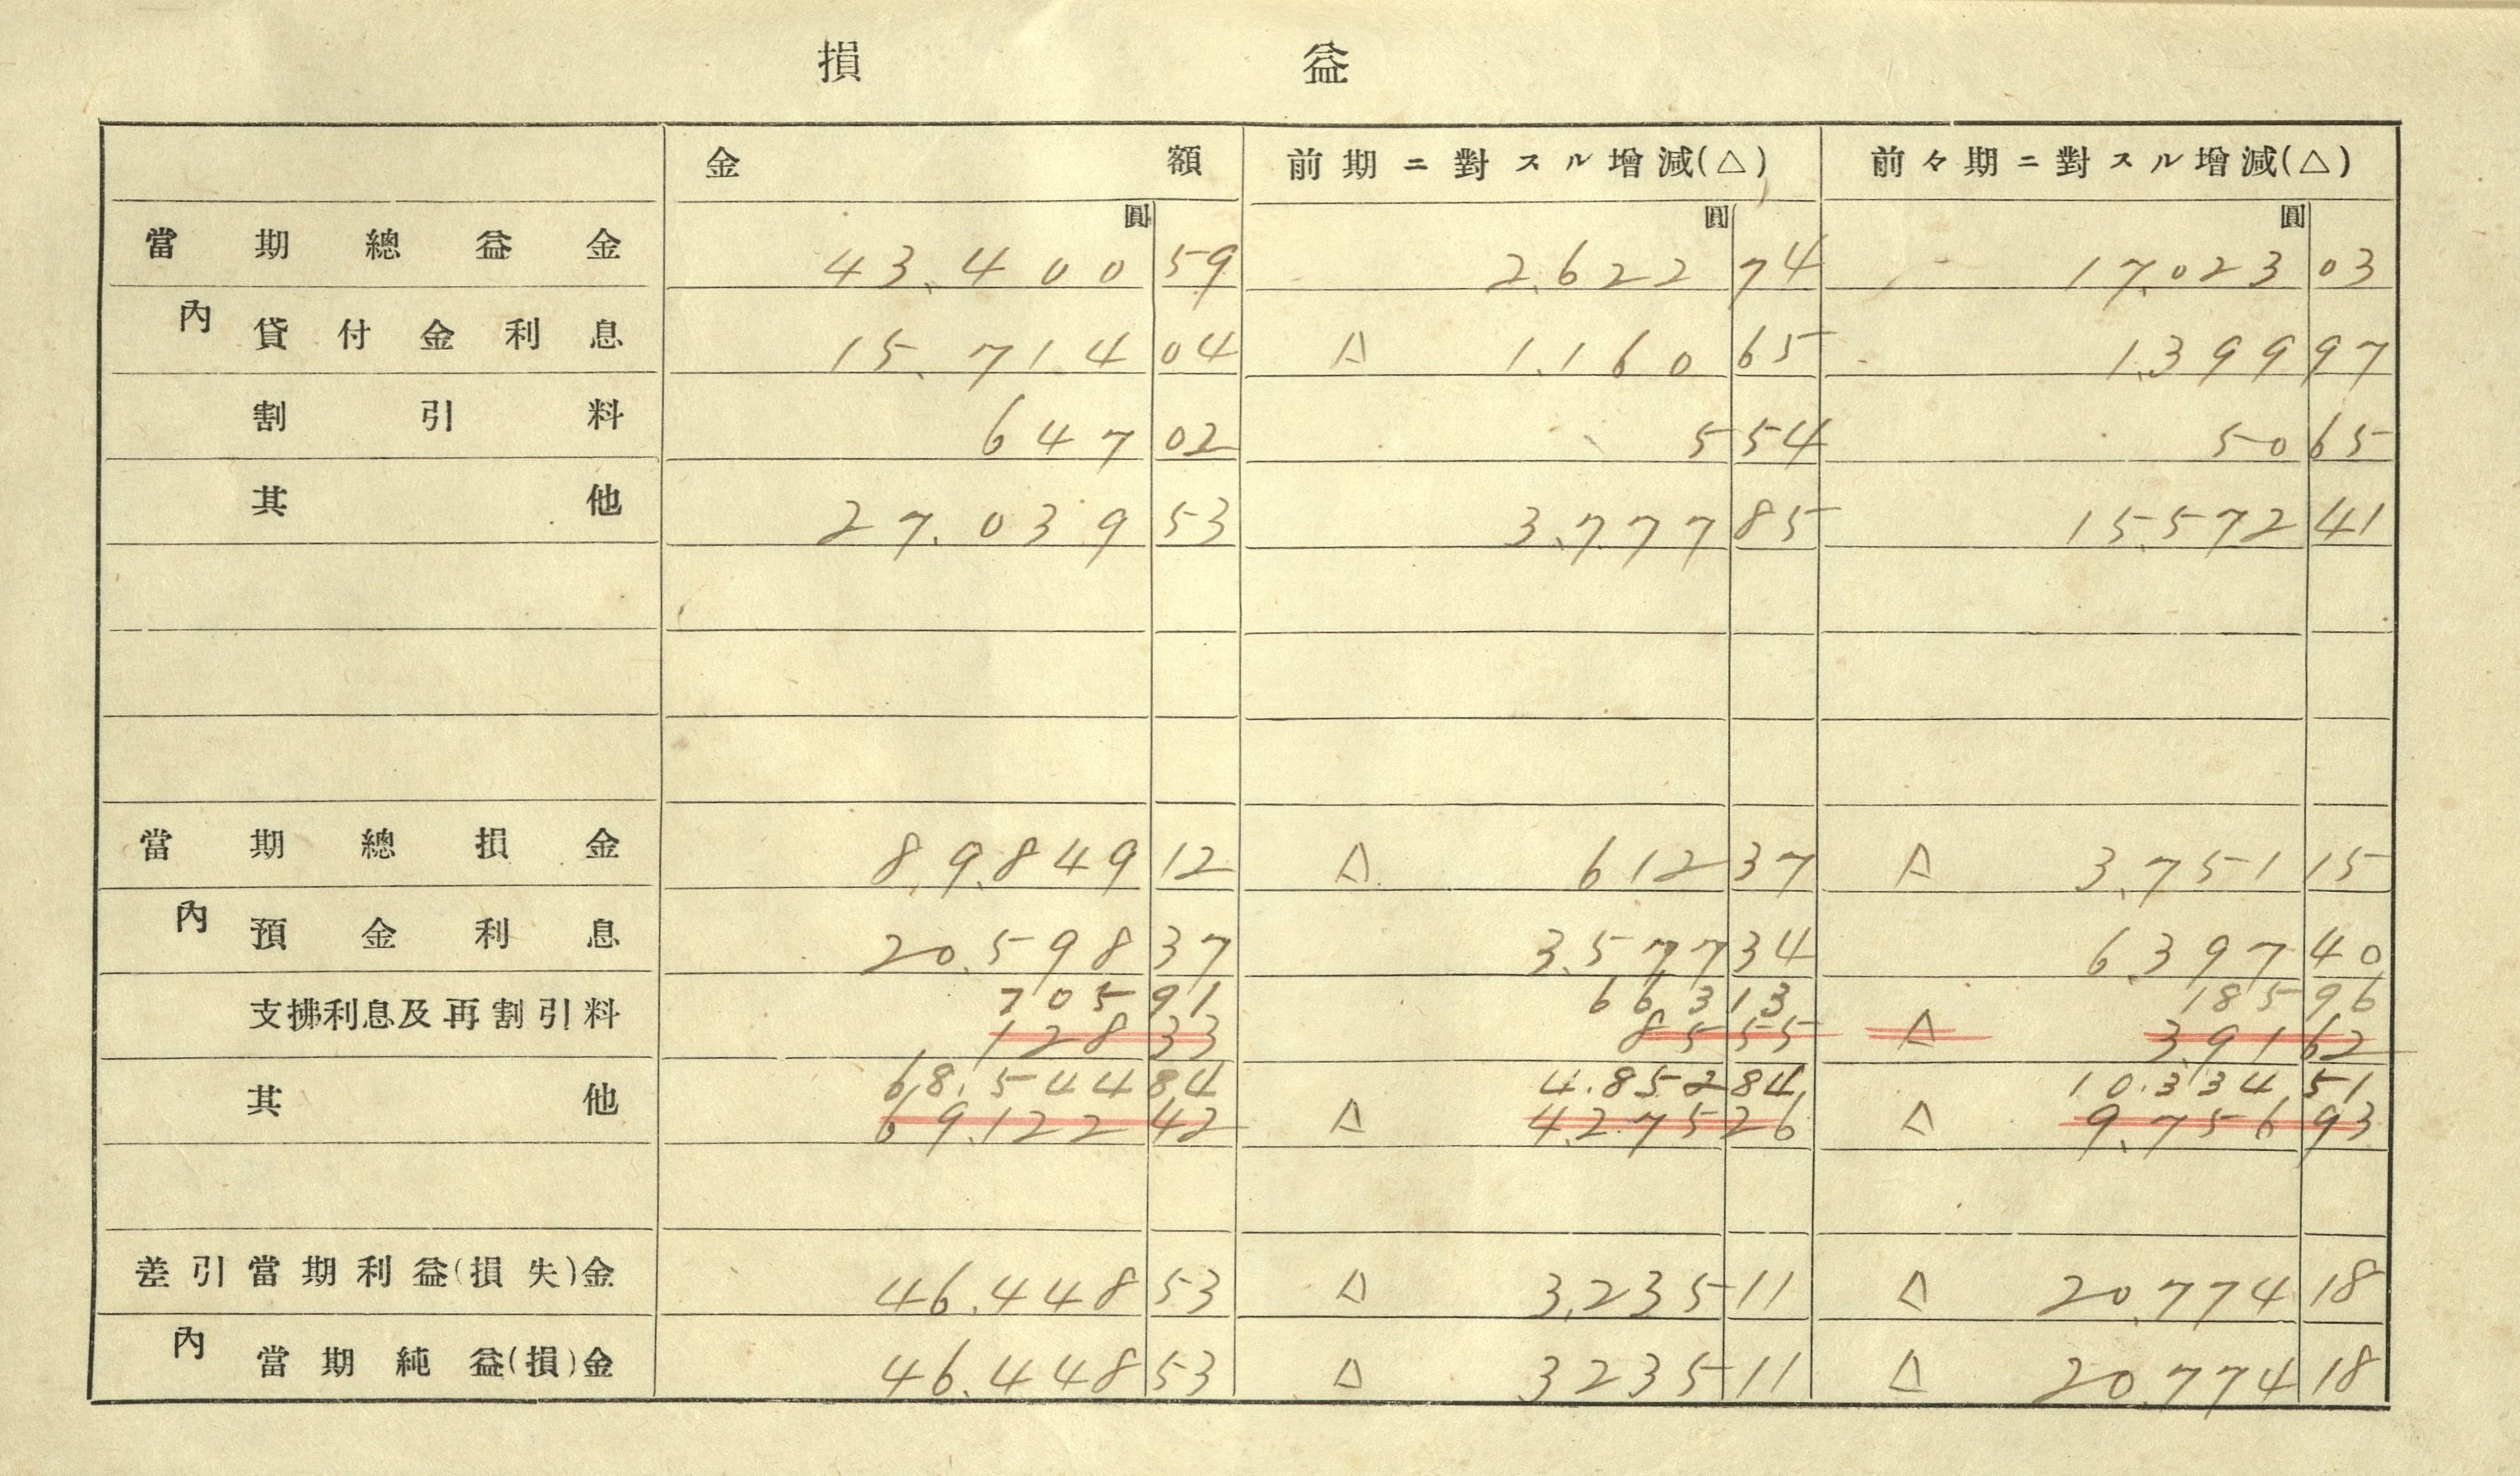 損 益
金 額 前期ニ對スル增減(△) 前々期ニ對スル增減(△)
圓 圓 圓
當期總益金 43.400 59 2.622 74 17.023 03
內 貸付金利息 15.714 04 △ 1.160 65 1.399 97
割引料 647 02 5 54 50 65
其他 27.039 53 3.777 85 15.572 41
當期總損金 89.849 12 △ 612 37 △ 3.751 15
內 預金利息 20.598 37 3.577 34 6.397 40
705 91 663 13 185 96
支拂利息及再割引料 128 33 85 55 △ 391 62
68.544 84 4.852 84 10.334 51
其他 69.122 42 △ 4.275 26 △ 9.756 93
差引當期利益(損失)金 46.448 53 △ 3.235 11 △ 20.774 18
內 當期純益(損)金 46.448 53 △ 3235 11 △ 20.774 18